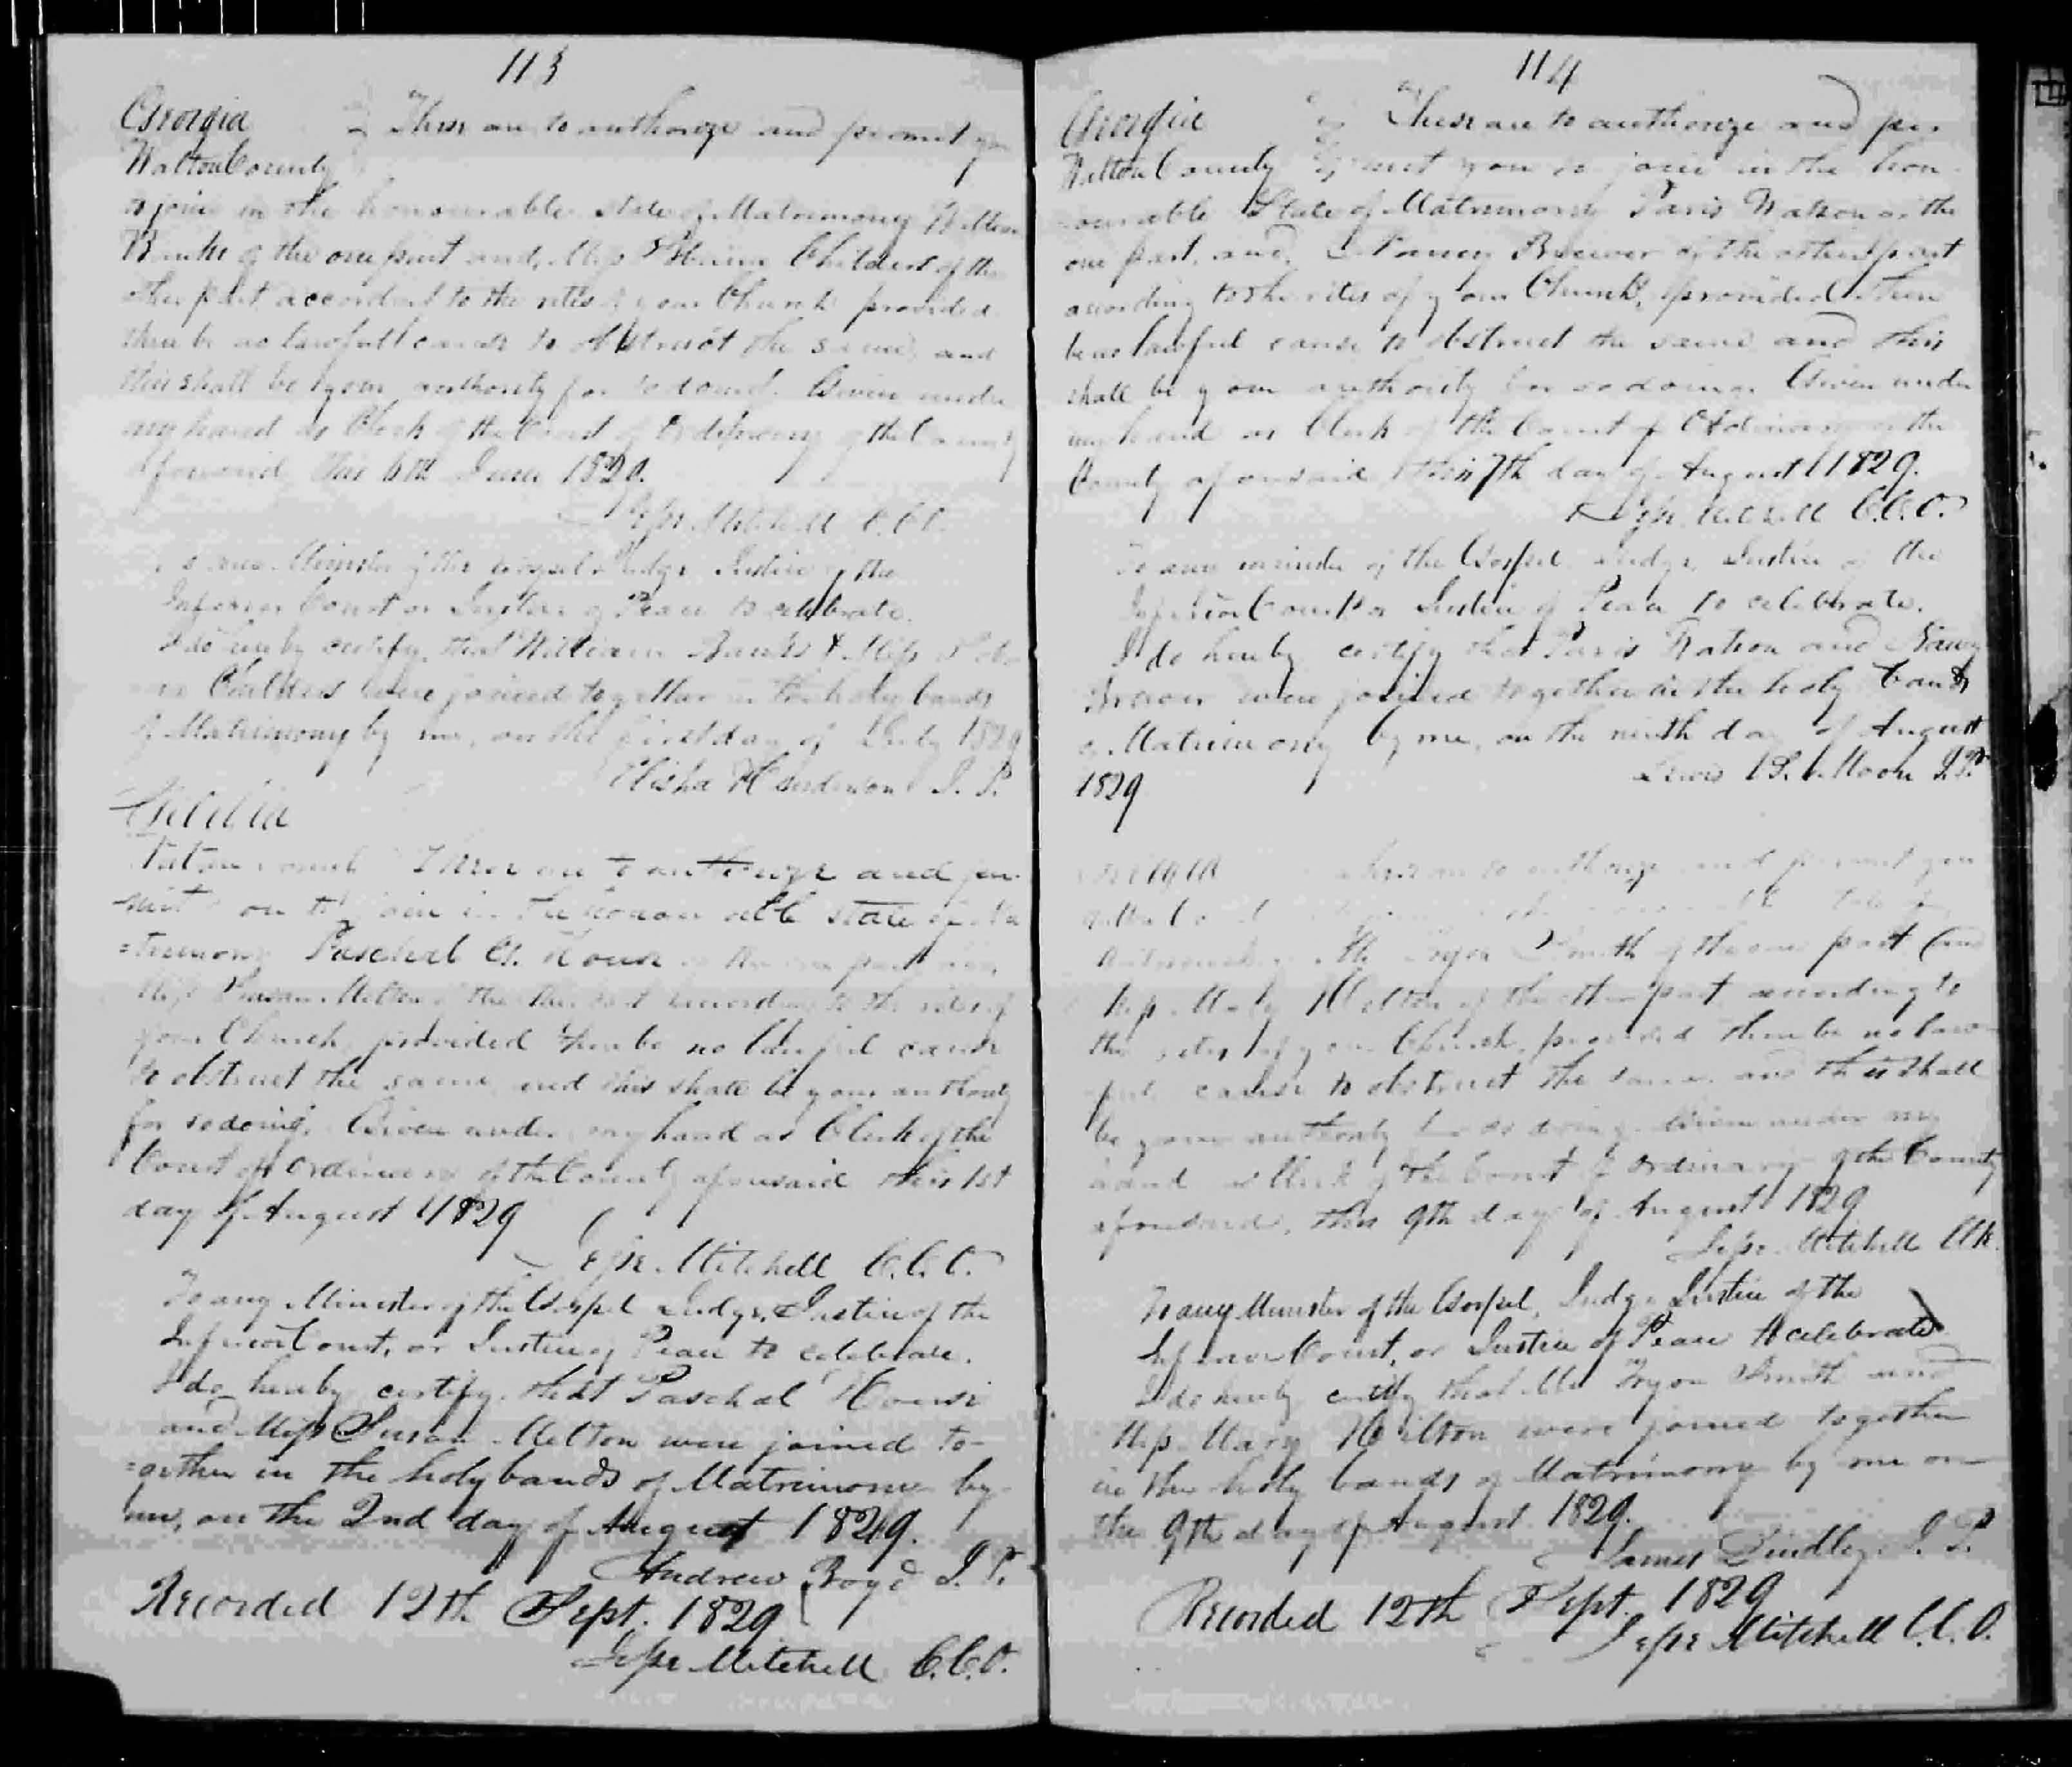 113
Georgia These are to authorize and permit you
Walton County
to join in the honourable state of Matrimony William
Banks of the one part and Miss Childers of the
other part according to the rites of your Church provided
there be no lawfull cause to obstruct the same, and
this shall be your authority for so doing. Given under
my hand as Clerk of the Court of Ordinary of the County
aforesaid this 6th June 1829.
Jesse Mitchell C.C.O.
To any Minister of the Gospel Judge, Justice of the
Inferior Court or Justice of Peace to celebrate.
I do hereby certify that William Banks & Miss
Childers were joined together in the holy bands
of Matrimony by me, on the first day of July 1829
Elisha Henderson J.P.
Georgia
Walton County These are to authorize and per-
mit you to join in the honourable state of Ma
=trimony Paschal House of the one part and
Miss Susan Melton of the other part according to the rites of
your Church, provided there be no lawful cause
to obstruct the same and this shall be your authority
for so doing. Given under my hand as Clerk of the
Court of Ordinary of the County aforesaid this 1st
day of August 1829
Jesse Mitchell C.C.O.
To any Minister of the Gospel Judge, Justice of the
Inferior Court, or Justice of Peace to celebrate.
I do hereby certify that Paschal House
and Miss Susan Melton were joined to-
=gether in the holy bands of Matrimony by
me, on the 2nd day of August 1829.
Andrew Boyd J.P.
Recorded 12th Sept. 1829
Jesse Mitchell C.C.O.
114
Georgia These are to authorize and per-
Walton County mit you to join in the hon-
-ourable State of Matrimony Paris Watson of the
one part, and Nancy Brewer of the other part
according to the rites of your Church, provided there
be no lawful cause to obstruct the same and this
shall be your authority for so doing. Given under
my hand as Clerk of the Court of Ordinary of the
County aforesaid this 7th day of August 1829.
Jesse Mitchell C.C.O.
To any minister of the Gospel Judge, Justice of the
Inferior Court or Justice of Peace to celebrate.
I do hereby certify that Paris Watson and Nancy
Brewer were joined together in the holy bands
of Matrimony by me, on the ninth day of August
1829 Lewis B. Moon J.P.
Georgia These are to authorize and permit you
Walton
Matrimony Mr Smith of the one part and
Miss Mary Melton of the other part according to
the rites of your Church, provided there be no law-
ful cause to obstruct the same and this shall
be your authority for so doing. Given under my
hand as Clerk of the Court of Ordinary of the County
aforesaid, this 9th day of August 1829
Jesse Mitchell Clk.
To any Minister of the Gospel, Judge Justice of the
Inferior Court, or Justice of Peace to celebrate
I do hereby certify that Mr Smith and
Miss Mary Melton were joined together
in the holy bands of Matrimony by me on
the 9th day of August 1829.
James Lindley J.P.
Recorded 12th Sept. 1829
Jesse Mitchell C.C.O.